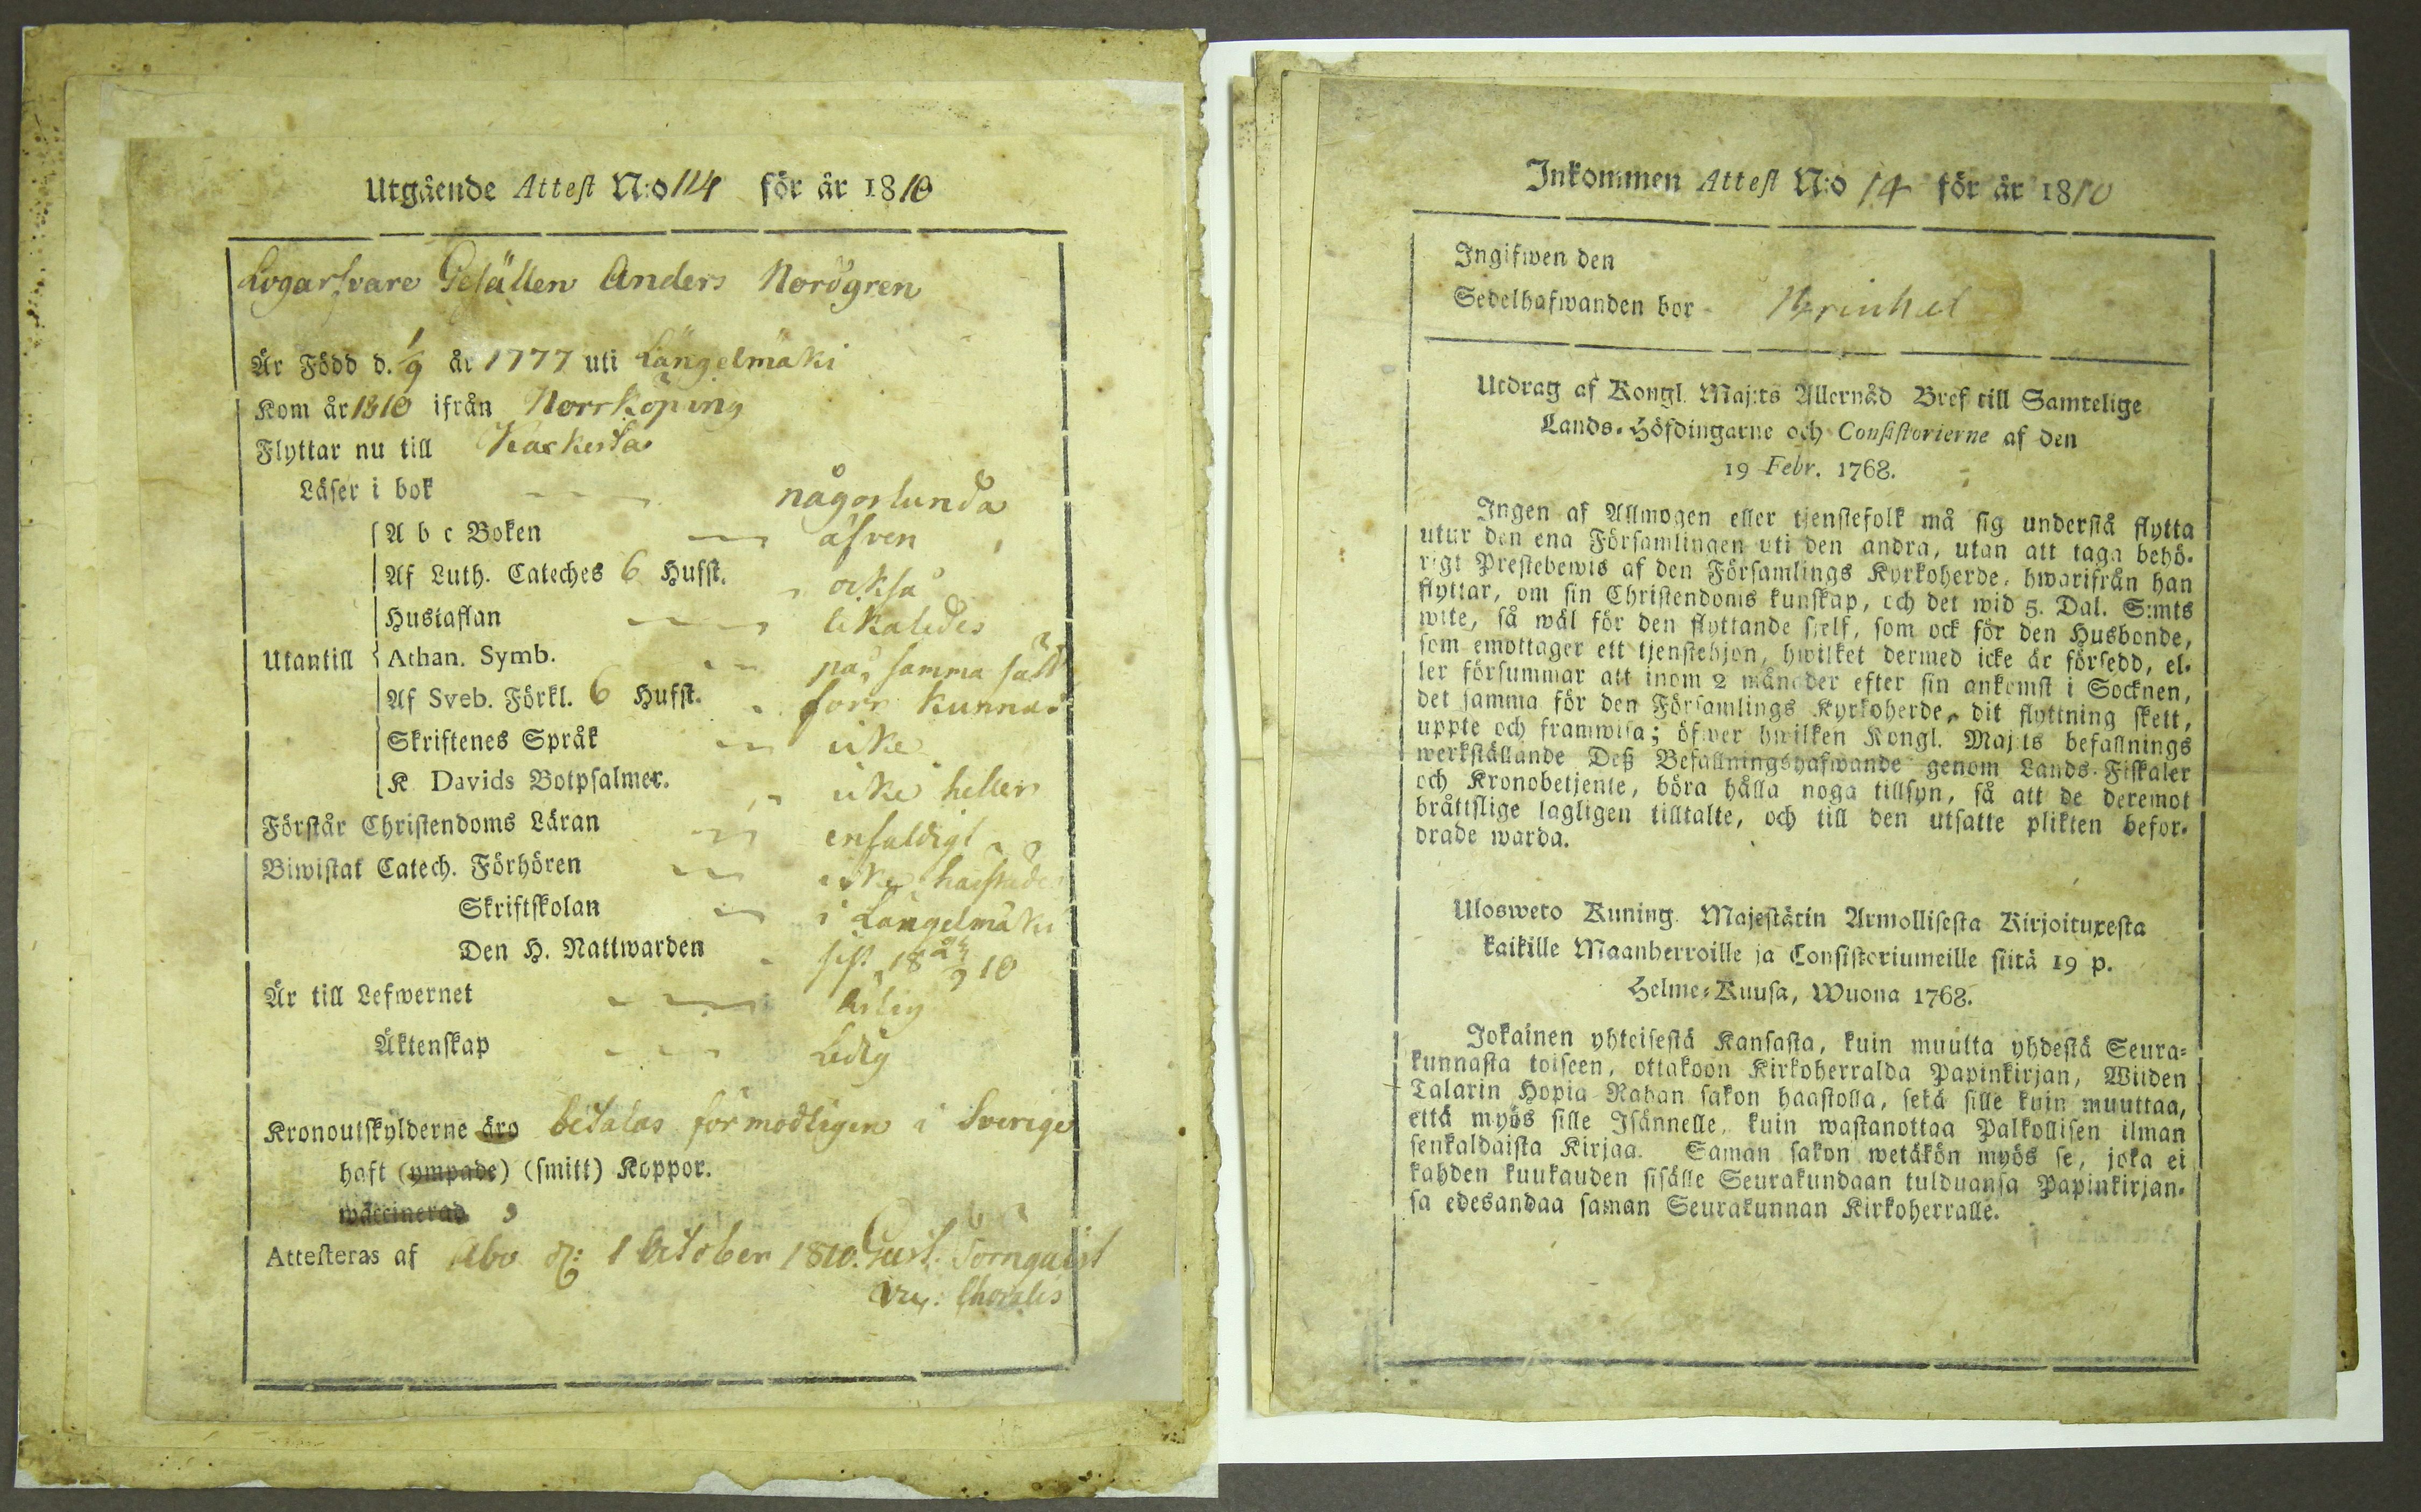 Utgående Attest N:o 114 för år 1810
Logarfvare Gesällen Anders Nordgren
Är Född d. 1/9 år 1777 uti Längelmäki
Kom år 1810 ifrån Norrköping
Flyttar nu till Kaskerta
Läser i bok någorlunda
A b c Boken äfven
Af Luth. Cateches 6 Hufst. också
Hustaflan likaledes
Utantill Athan. Symb. på samma sätt
Af Sveb. Förkl. 6 Hufst. förr kunnat
Skriftenes Språk icke
K Davids Botpsalmer. icke heller
Förstår Christendoms Läran enfaldigt
Biwistat Catech. Förhören icke härstädes
Skriftskolan i Längelmäki
Den H. Nattwarden sist 18 10
Är till Lefwernet ärlig
Äktenskap Ledig
Kronoutskylderne äro betalas förmodligen i Sverige
haft (ympade) (smitt) Koppor.
waccinerad
Attesteras af Åbo d: 1 October 1810. Gust. Törnquist
Inkommen Attest N:o 14 för år 1810
Ingifwen den
Sedelhafwanden bor Brinkal
Utdrag af Kongl. Maj:ts Allernåd Bref till Samtelige
Lands-Höfdingarne och Consistorierne af den
19 Febr. 1768.
Ingen af Allmogen eller tjenstefolk må sig understå flytta
utur den ena Församlingen uti den andra, utan att taga behö-
rigt Prestebewis af den Församlings Kyrkoherde, hwarifrån han
flyttar, om sin Christendoms kunskap, och det wid 5. Dal. S:mts
wite, så wäl för den flyttande sjelf, som ock för den Husbonde,
som emottager ett tjenstehjon, hwilket dermed icke är försedd, el-
ler försummar att inom 2 månader efter sin ankomst i Socknen,
det samma för den Församlings Kyrkoherde, dit flyttning skett,
uppte och framwisa; öfwer hwilken Kongl. Maj:ts befallnings
werkställande Deß Befallningshafwande genom Lands-Fiskaler
och Kronobetjente, böra hålla noga tillsyn, så att de deremot
bråttslige lagligen tilltalte, och till den utsatte plikten befor-
drade warda.
Ulosweto Kuning. Majestätin Armollisesta Kirjoituxesta
kaikille Maanherroille ja Consistoriumeille siitä 19 p.
Helme-Kuusa, Wuona 1768.
Jokainen yhteisestä Kansasta, kuin muutta yhdestä Seura-
kunnasta toiseen, ottakoon Kirkoherralda Papinkirjan, Wiiden
Talarin Hopia Rahan sakon haastolla, sekä sille kuin muuttaa,
että myös sille Isännelle, kuin wastanottaa Palkollisen ilman
senkaldaista Kirjaa. Saman sakon wetäkön myös se, joka ei
kahden kuukauden sisälle Seurakundaan tulduansa Papinkirjan-
sa edesandaa saman Seurakunnan Kirkoherralle.